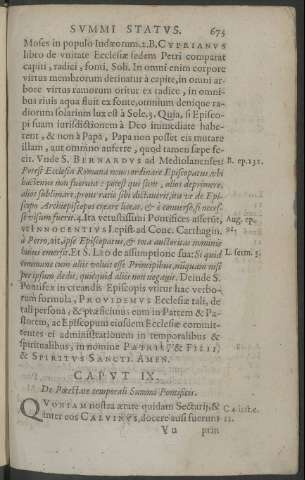 SVMMI STATVS. 675
Moses in populo Iudæorum. 2. B. CYPRIANVS
libro de vnitate Ecclesiæ sedem Petri comparat
capiti, radici, fonti, Soli. In omni enim corpore
virtus membrorum deriuatur à capite, in omni ar-
bore virtus ramorum oritur ex radice, in omni-
bus riuis aqua fluit ex fonte, omnium denique ra-
diorum solarium lux est à Sole. 3. Quia, si Episco-
pi suam iurisdictionem à Deo immediatè habe-
rent, & non à Papa, Papa non posset eis mutare
illam, aut omnino auferre, quod tamen sæpe fe-
cit. Vnde S. BERNARDVS ad Mediolanenses: B. ep. 131.
Potest Ecclesia Romana nouos ordinare Episcopatus vbi
hactenus non fuerunt: potest qui sunt, alios deprimere,
alios sublimare, prout ratio sibi dictauerit, ita vt de Epi-
scopo Archiepiscopos creare liceat, & è conuerso, si necesse
visum fuerit. 4. Ita vetustissimi Pontifices asserũt, Aug. ep.
vt INNOCENTIVS I. epist. ad Conc. Carthagin. 91.
à Petro, ait, ipse Episcopatus, & tota auctoritas nominis
huius emersit. Et S. LEO de assumptione sua: Si quid L. serm. 3.
commune cum aliis voluit esse Principibus, nunquam nisi
per ipsum dedit, quicquid aliis non negauit. Deinde S.
Pontifex in creandis Episcopis vtitur hac verbo-
rum formula, PROVIDEMVS Ecclesiæ tali, de
tali persona, & præficimus eum in Patrem & Pa-
storem, ac Episcopum eiusdem Ecclesiæ committ-
entes ei administrationem in temporalibus &
spiritualibus, in nomine PATRIS, & FILII,
& SPIRITVS SANCTI. AMEN.
CAPVT IX.
De Potestate temporali Summi Pontificis.
QVONIAM nostra ætate quidam Sectarij, &
inter eos CALVINVS, docere ausi fuerunt 11.
Vu prin